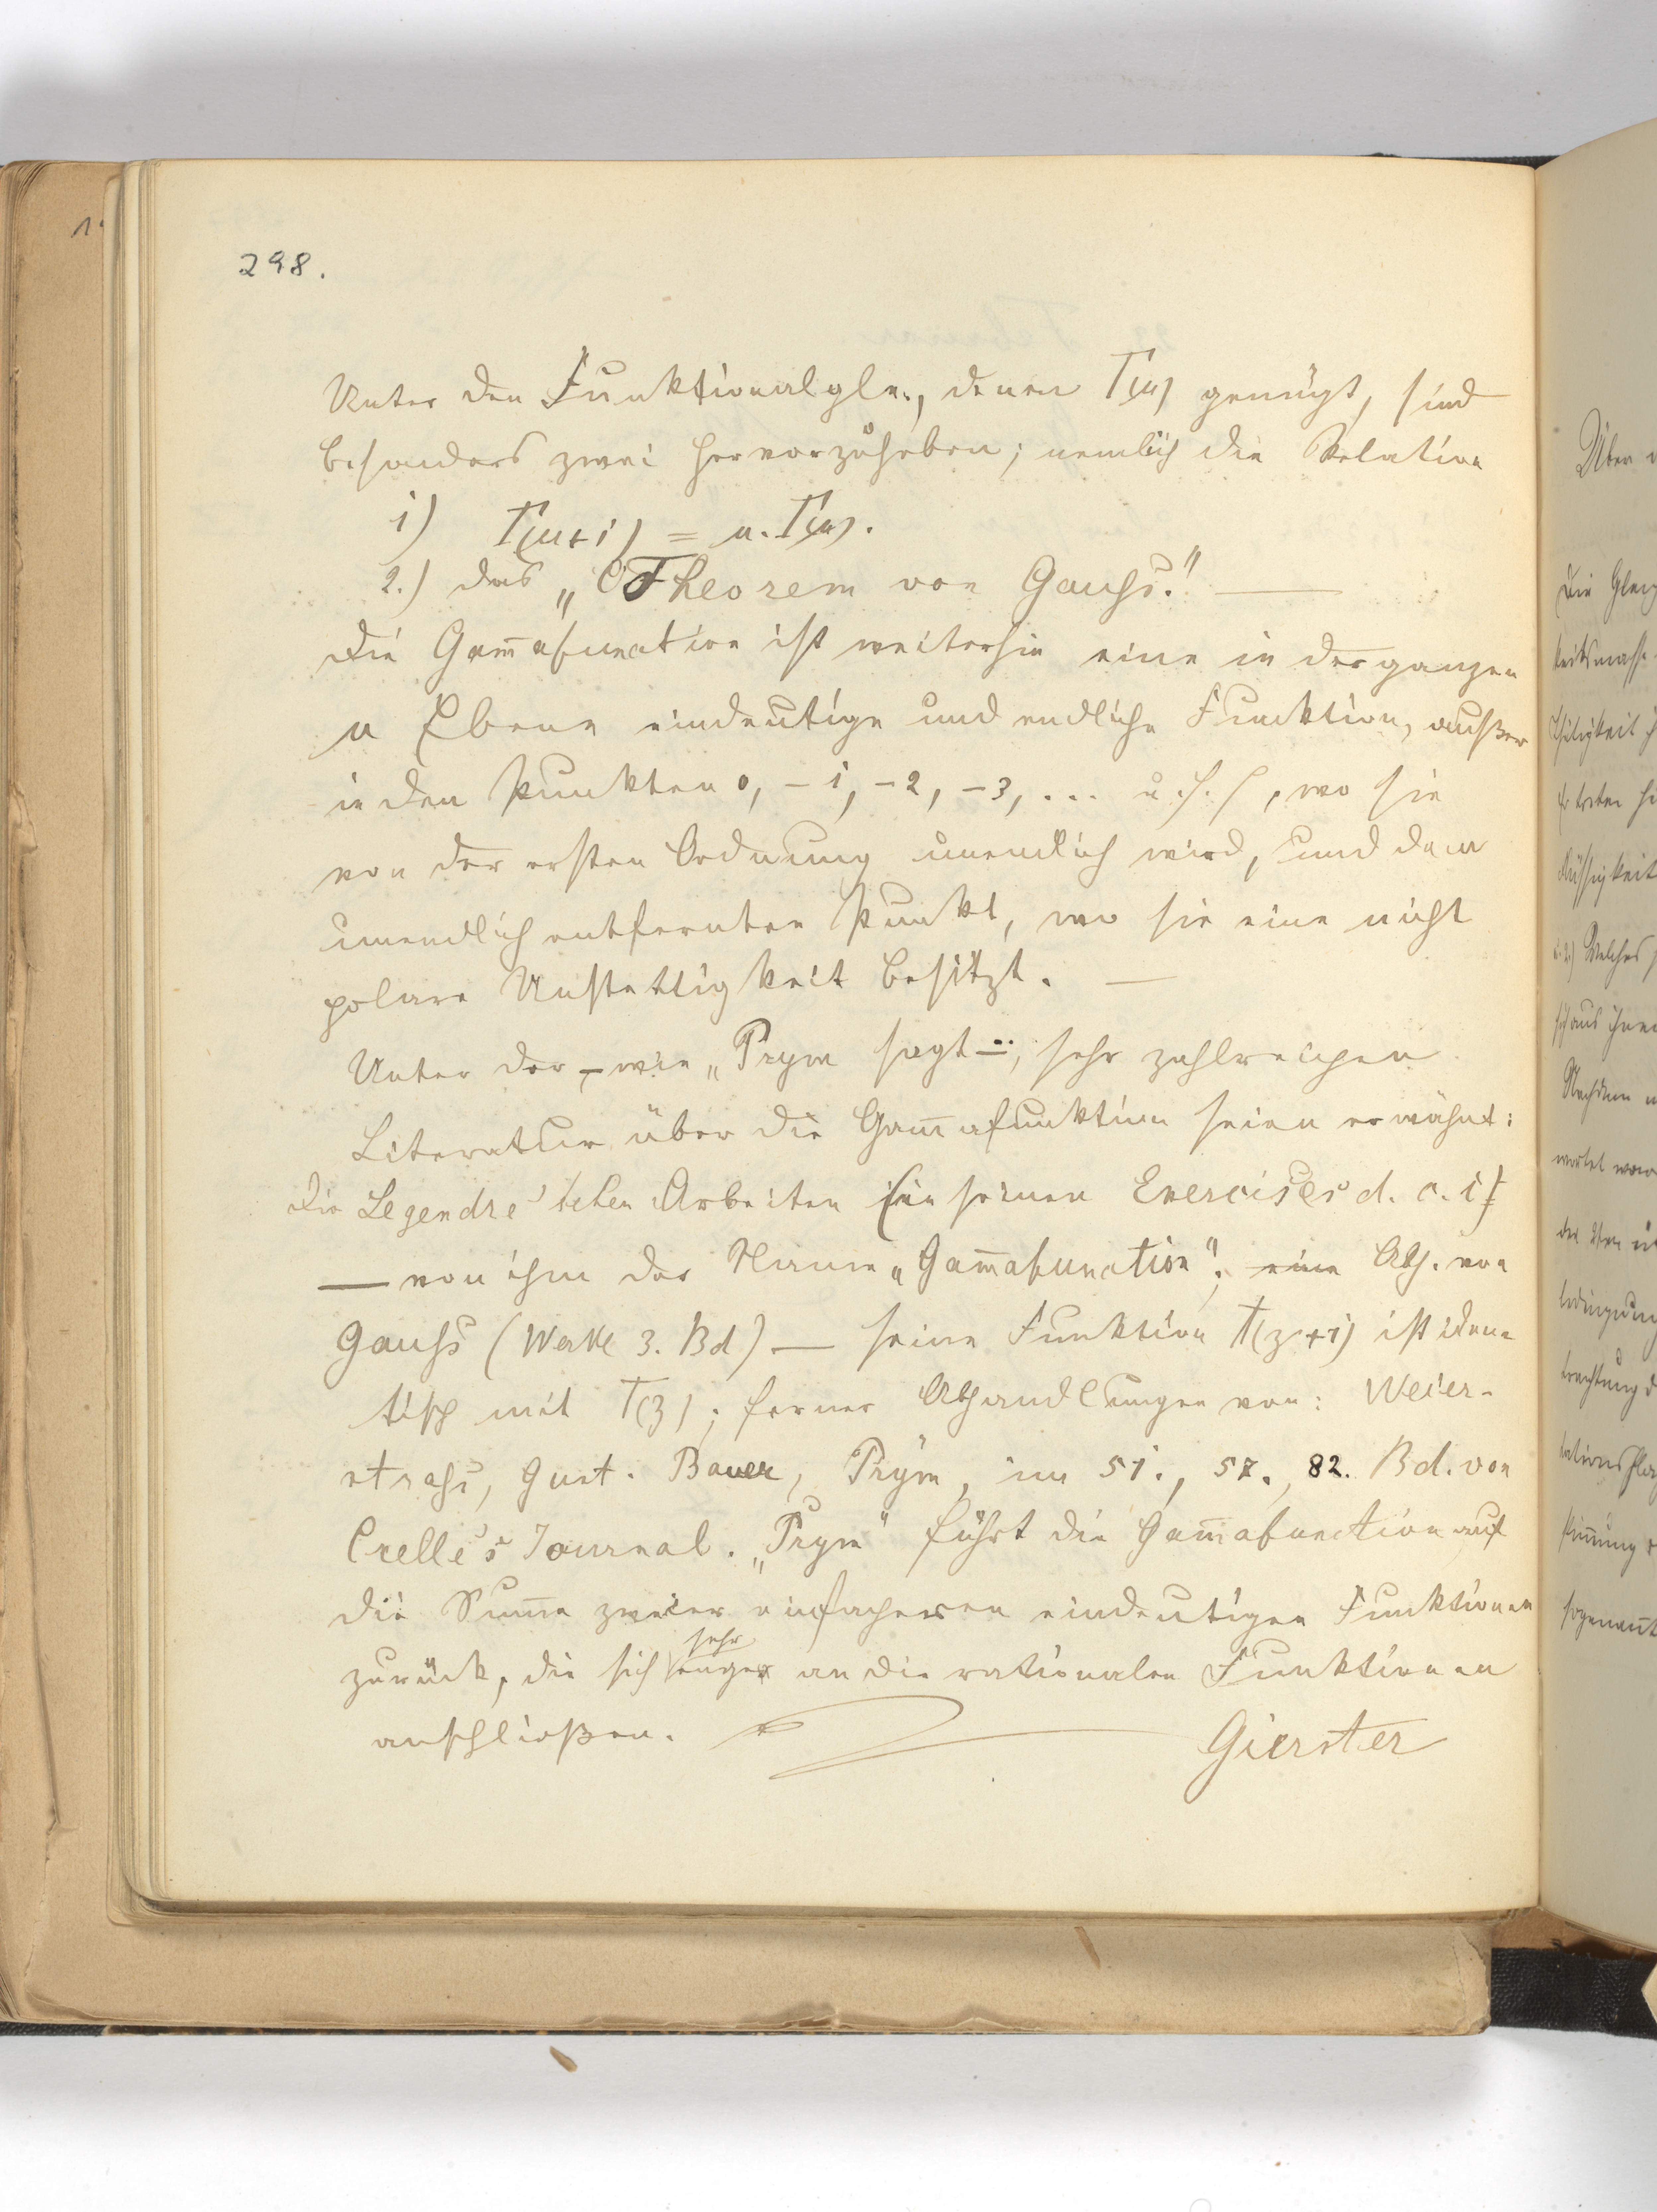 298.
Unter den Funktionalgln., denen Γ(u) genügt, sind
besonders zwei hervorzuheben; nemlich die Relation
1) Γ(u+1) = u. Γ(u).
2.) das „Theorem von Gauß."—
Die Gam̄afunction ist weiterhin eine in der ganzen
u Ebene eindeutige und endliche Funktion, außer
in den Punkten 0, -1, -2, -3, ... u. s. f, wo sie
von der ersten Ordnung unendlich wird, und dem
unendlich entfernten Punkt, wo sie eine nicht
polare Unstettigkeit besitzt. —
Unter der, – wie „Prym sagt –", sehr zahlreichen
Literatur über die Gam̄afunktion seien erwähnt:
die Legendre'schen Arbeiten (in seinen Exercises d. c. i)
— von ihm der Name „Gam̄afunction"; eine Abh. von
Gauß (Werke 3. Bd) — seine Funktion Π(z+1) ist iden-
tisch mit Γ(z); ferner Abhandlungen von: Weier-
straß, Gust. Bauer, Prym, im 51., 57., 82. Bd. von
Crelle's Journal. „Prym" führt die Gam̄afunction auf
die Sum̄e zweier einfacheren eindeutigen Funktionen
zurück, die sich sehr enge an die rationalen Funktionen
anschließen. Gierster
1.
Über
Die
keitsmasse
keit
Welches
aus ihnen
Nachdem
sogenannt